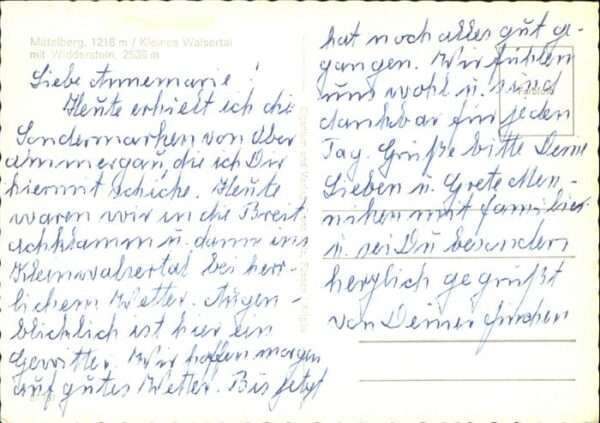 Mittelberg, 1218 m / Kleines Walsertal
mit Widderstein, 2536 m
Liebe Annemarie!
Heute erhielt ich die
Sondermarken von Ober
ammergau, die ich Dir
hiermit schicke. Heute
waren wir in die Breit
achklamm u. dann ins
Kleinwalsertal bei herr-
lichem Wetter. Augen-
blicklich ist hier ein
Gewitter. Wir hoffen morgen
auf gutes Wetter. Bis jetzt
hat noch alles gut ge-
gangen. Wir fühlen
uns wohl u. sind
dankbar für jeden
Tag. Grüße bitte Deine
Lieben u. Grete Men-
niken mit Familie
u. sei Du besonders
herzlich gegrüßt
von Deiner